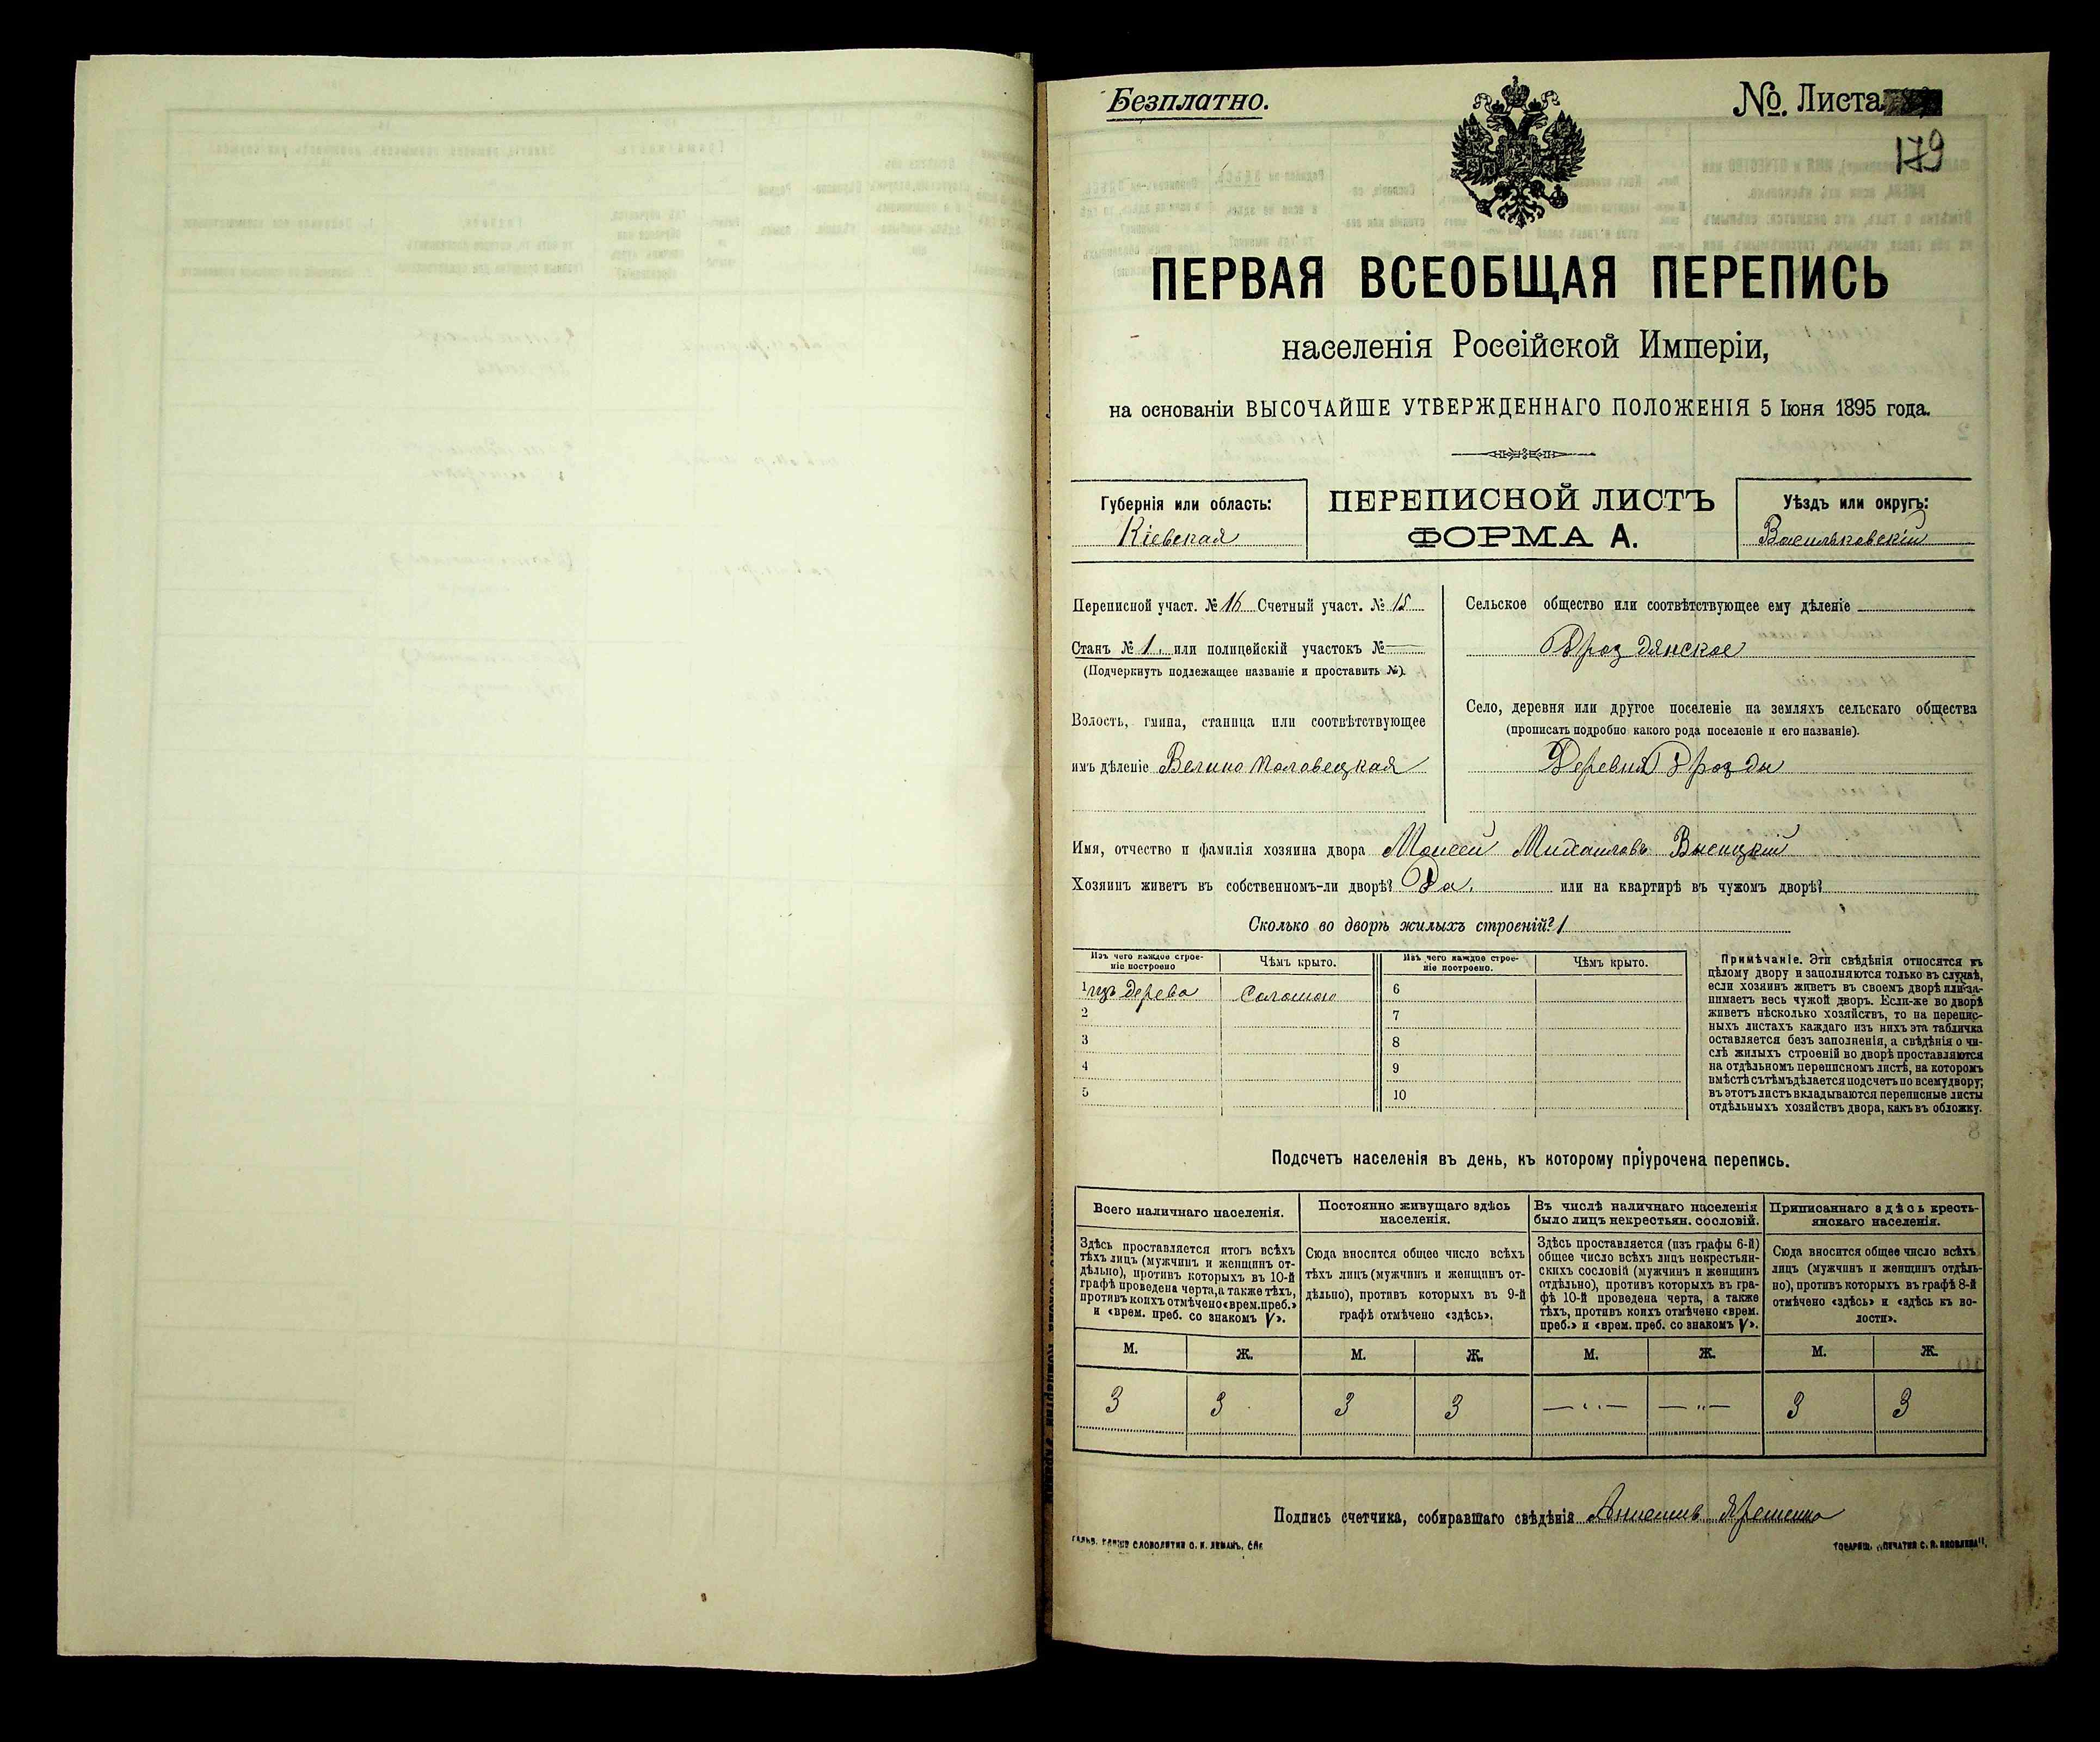 Безплатно.
№. Листа
179
ПЕРВАЯ ВСЕОБЩАЯ ПЕРЕПИСЬ
населенія Россійской Имперіи,
на основаніи ВЫСОЧАЙШЕ УТВЕРЖДЕННАГО ПОЛОЖЕНІЯ 5 Іюня 1895 года.
Губернія или область:
Кіевская
ПЕРЕПИСНОЙ ЛИСТЪ
ФОРМА А.
Уѣздъ или округъ:
Васильковскій
Переписной участ. № 16 Счетный участ. № 15
Станъ № 1. или полицейскій участокъ № —
(Подчеркнуть подлежащее названіе и проставить №).
Волость, гмина, станица или соотвѣтствующее
имъ дѣленіе Велико Половецкая
Сельское общество или соотвѣтствующее ему дѣленіе
Дроздянское
Село, деревня или другое поселеніе на земляхъ сельскаго общества
(прописать подробно какого рода поселеніе и его названіе).
Деревня Дрозды
Имя, отчество и фамилія хозяина двора Моисей Михаиловъ Высицкій
Хозяинъ живетъ въ собственномъ-ли дворѣ? Да. или на квартирѣ въ чужомъ дворѣ?
Сколько во дворѣ жилыхъ строеній? 1
Изъ чего каждое строе-
ніе построено
Чѣмъ крыто.
Изъ чего каждое строе-
ніе построено.
Чѣмъ крыто.
1 изъ дерева Соломою
2
3
4
5
6
7
8
9
10
Примѣчаніе. Эти свѣдѣнія относятся къ
цѣлому двору и заполняются только въ случаѣ,
если хозяинъ живетъ въ своемъ дворѣ или за-
нимаетъ весь чужой дворъ. Если-же во дворѣ
живетъ нѣсколько хозяйствъ, то на перепис-
ныхъ листахъ каждаго изъ нихъ эта табличка
оставляется безъ заполненія, а свѣдѣнія о чи-
слѣ жилыхъ строеній во дворѣ проставляются
на отдѣльномъ переписномъ листѣ, на которомъ
вмѣстѣ съ тѣмъ дѣлается подсчетъ по всему двору;
въ этотъ листъ вкладываются переписные листы
отдѣльныхъ хозяйствъ двора, какъ въ обложку.
Подсчетъ населенія въ день, къ которому пріурочена перепись.
Всего наличнаго населенія.
Здѣсь проставляется итогъ всѣхъ
тѣхъ лицъ (мужчинъ и женщинъ от-
дѣльно), противъ которыхъ въ 10-й
графѣ проведена черта, а также тѣхъ,
противъ коихъ отмѣчено «врем. преб.»
и «врем. преб. со знакомъ V».
Постоянно живущаго здѣсь
населенія.
Сюда вносится общее число всѣхъ
тѣхъ лицъ (мужчинъ и женщинъ от-
дѣльно), противъ которыхъ въ 9-й
графѣ отмѣчено «здѣсь».
Въ числѣ наличнаго населенія
было лицъ некрестьян. сословій.
Здѣсь проставляется (изъ графы 6-й)
общее число всѣхъ лицъ некрестьян-
скихъ сословій (мужчинъ и женщинъ
отдѣльно), противъ которыхъ въ гра-
фѣ 10-й проведена черта, а также
тѣхъ, противъ коихъ отмѣчено «врем.
преб.» и «врем. преб. со знакомъ V».
Приписаннаго здѣсь кресть-
янскаго населенія.
Сюда вносится общее число всѣхъ
лицъ (мужчинъ и женщинъ отдѣль-
но), противъ которыхъ въ графѣ 8-й
отмѣчено «здѣсь» и «здѣсь къ во-
лости».
М. Ж. М. Ж. М. Ж. М. Ж.
3 3 3 3 —„— —„— 3 3
Подпись счетчика, собиравшаго свѣдѣнія
ГАЛЬВ. КЛИШЕ СЛОВОЛИТНИ О. И. ЛЕМАНЪ, СПБ
ТОВАРИЩ. „ПЕЧАТНЯ С. П. ЯКОВЛЕВА".